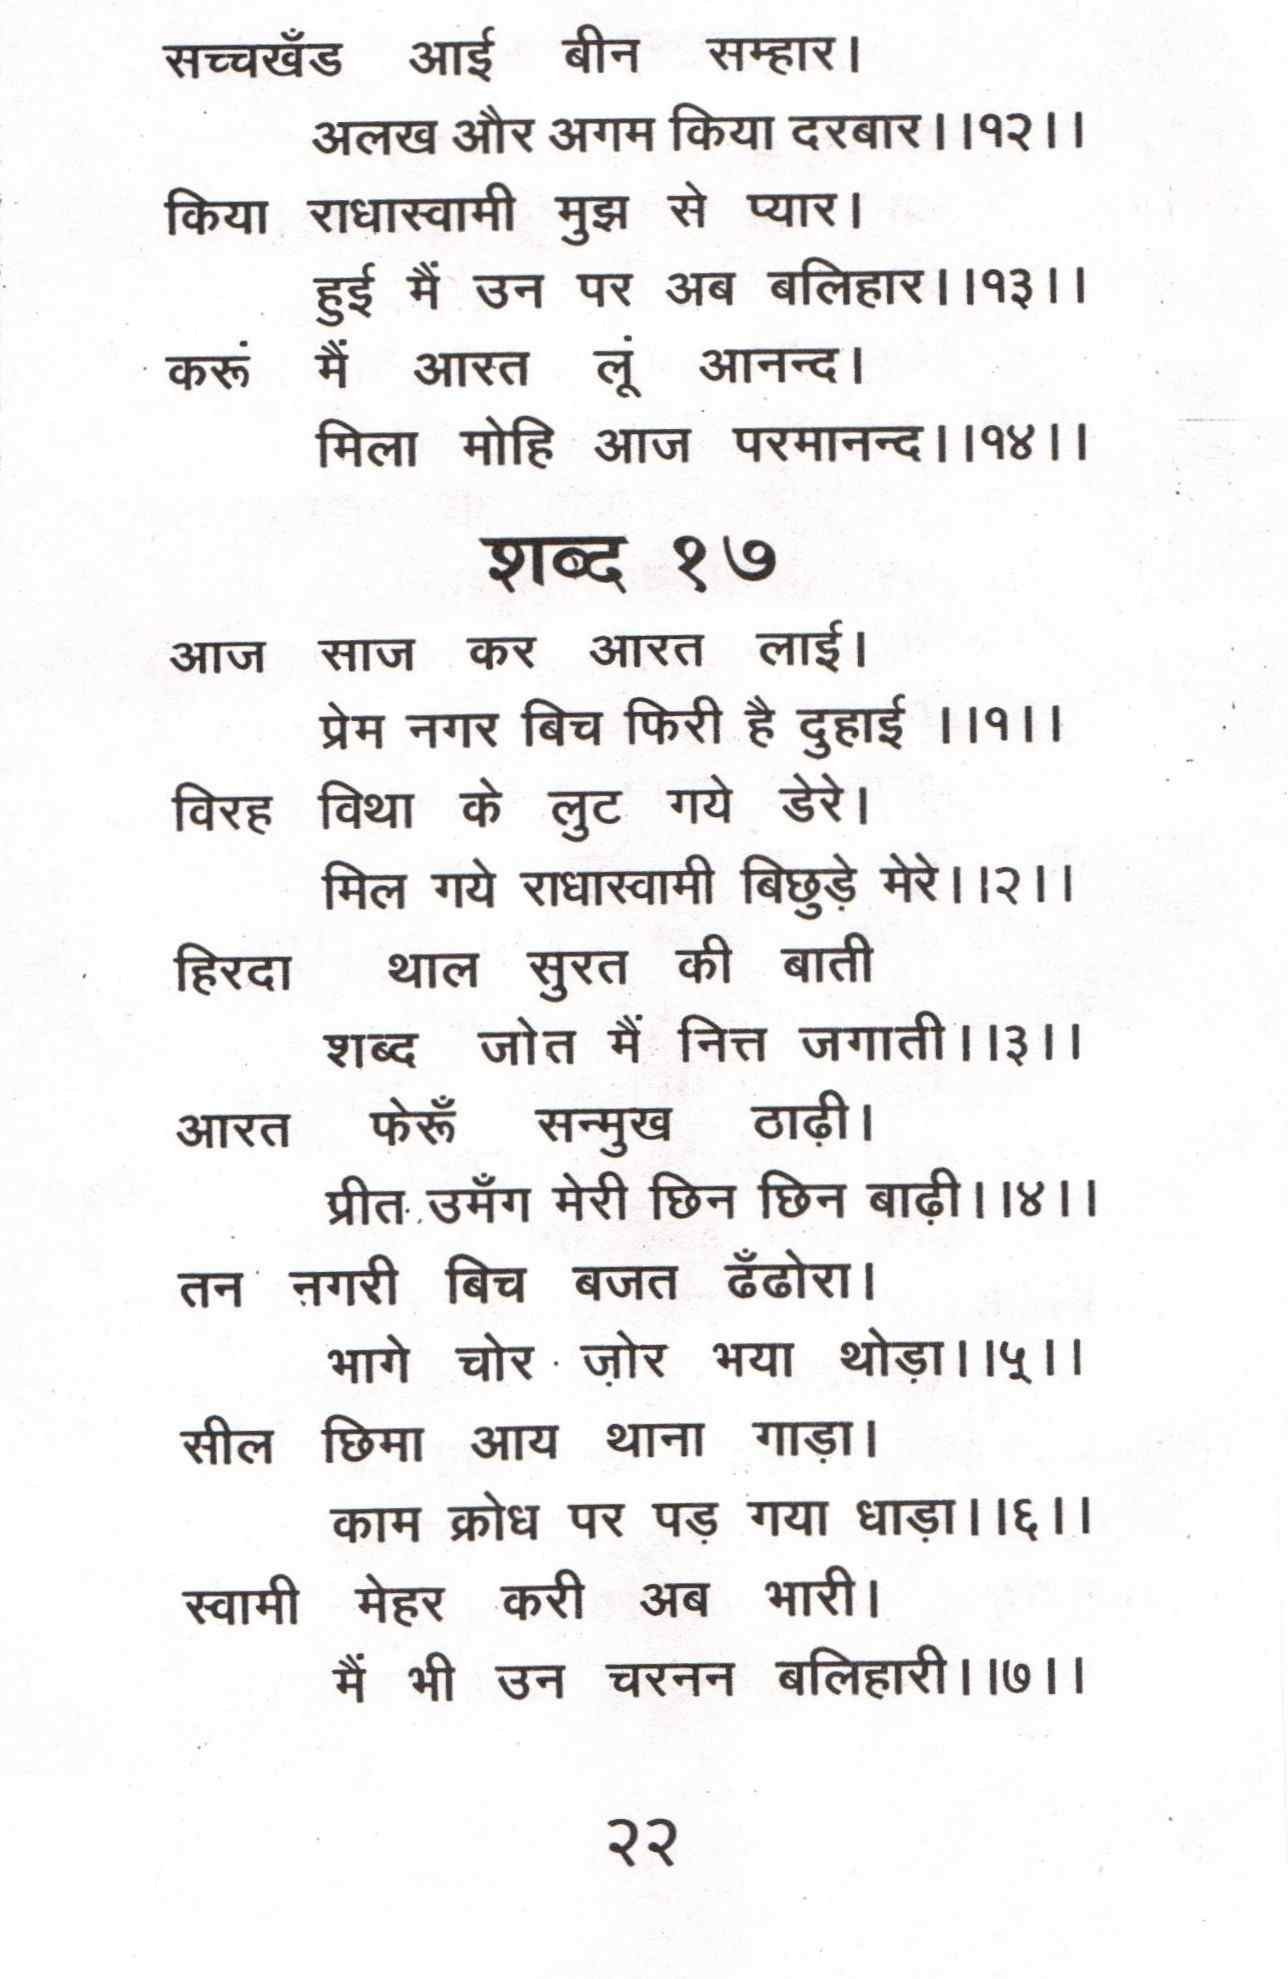 सच्चखँड आई बीन सम्हार।
अलख और अगम किया दरबार।।१२।।
किया राधास्वामी मुझ से प्यार।
हुई मैं उन पर अब बलिहार।।१३।।
करूं मैं आरत लूं आनन्द।
मिला मोहि आज परमानन्द।।१४।।
शब्द १७
आज साज कर आरत लाई।
प्रेम नगर बिच फिरी है दुहाई ।।१।।
विरह विथा के लुट गये डेरे।
मिल गये राधास्वामी बिछुड़े मेरे।।२।।
हिरदा थाल सुरत की बाती
शब्द जोत मैं नित्त जगाती।।३।।
आरत फेरूँ सन्मुख ठाढ़ी।
प्रीत उमँग मेरी छिन छिन बाढ़ी।।४।।
तन नगरी बिच बजत ढँढोरा।
भागे चोर ज़ोर भया थोड़ा।।५।।
सील छिमा आय थाना गाड़ा।
काम क्रोध पर पड़ गया धाड़ा।।६।।
स्वामी मेहर करी अब भारी।
मैं भी उन चरनन बलिहारी।।७।।
२२